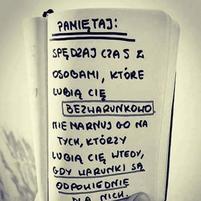 PAMIĘTAJ:
SPĘDZAJ CZAS Z
OSOBAMI, KTÓRE
LUBIĄ CIĘ
BEZWARUNKOWO
NIE MARNUJ GO NA
TYCH, KTÓRZY
LUBIĄ CIĘ WTEDY,
GDY WARUNKI SĄ
ODPOWIEDNIE
DLA NICH.